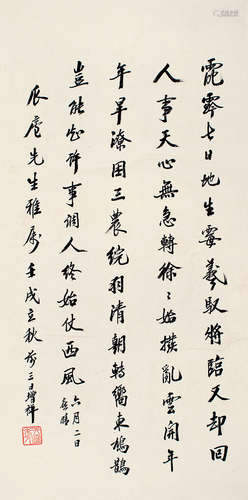 七日地生霉羲馭將臨天却回
人事天心無急轉徐〻始撥亂雲開年
年旱潦困三農綄羽清朝轉嚮東鳩鵲
豈能知許事調人終始仗西風 六月二日
喜晴
廬先生雅屬壬戌立秋前三日增祥